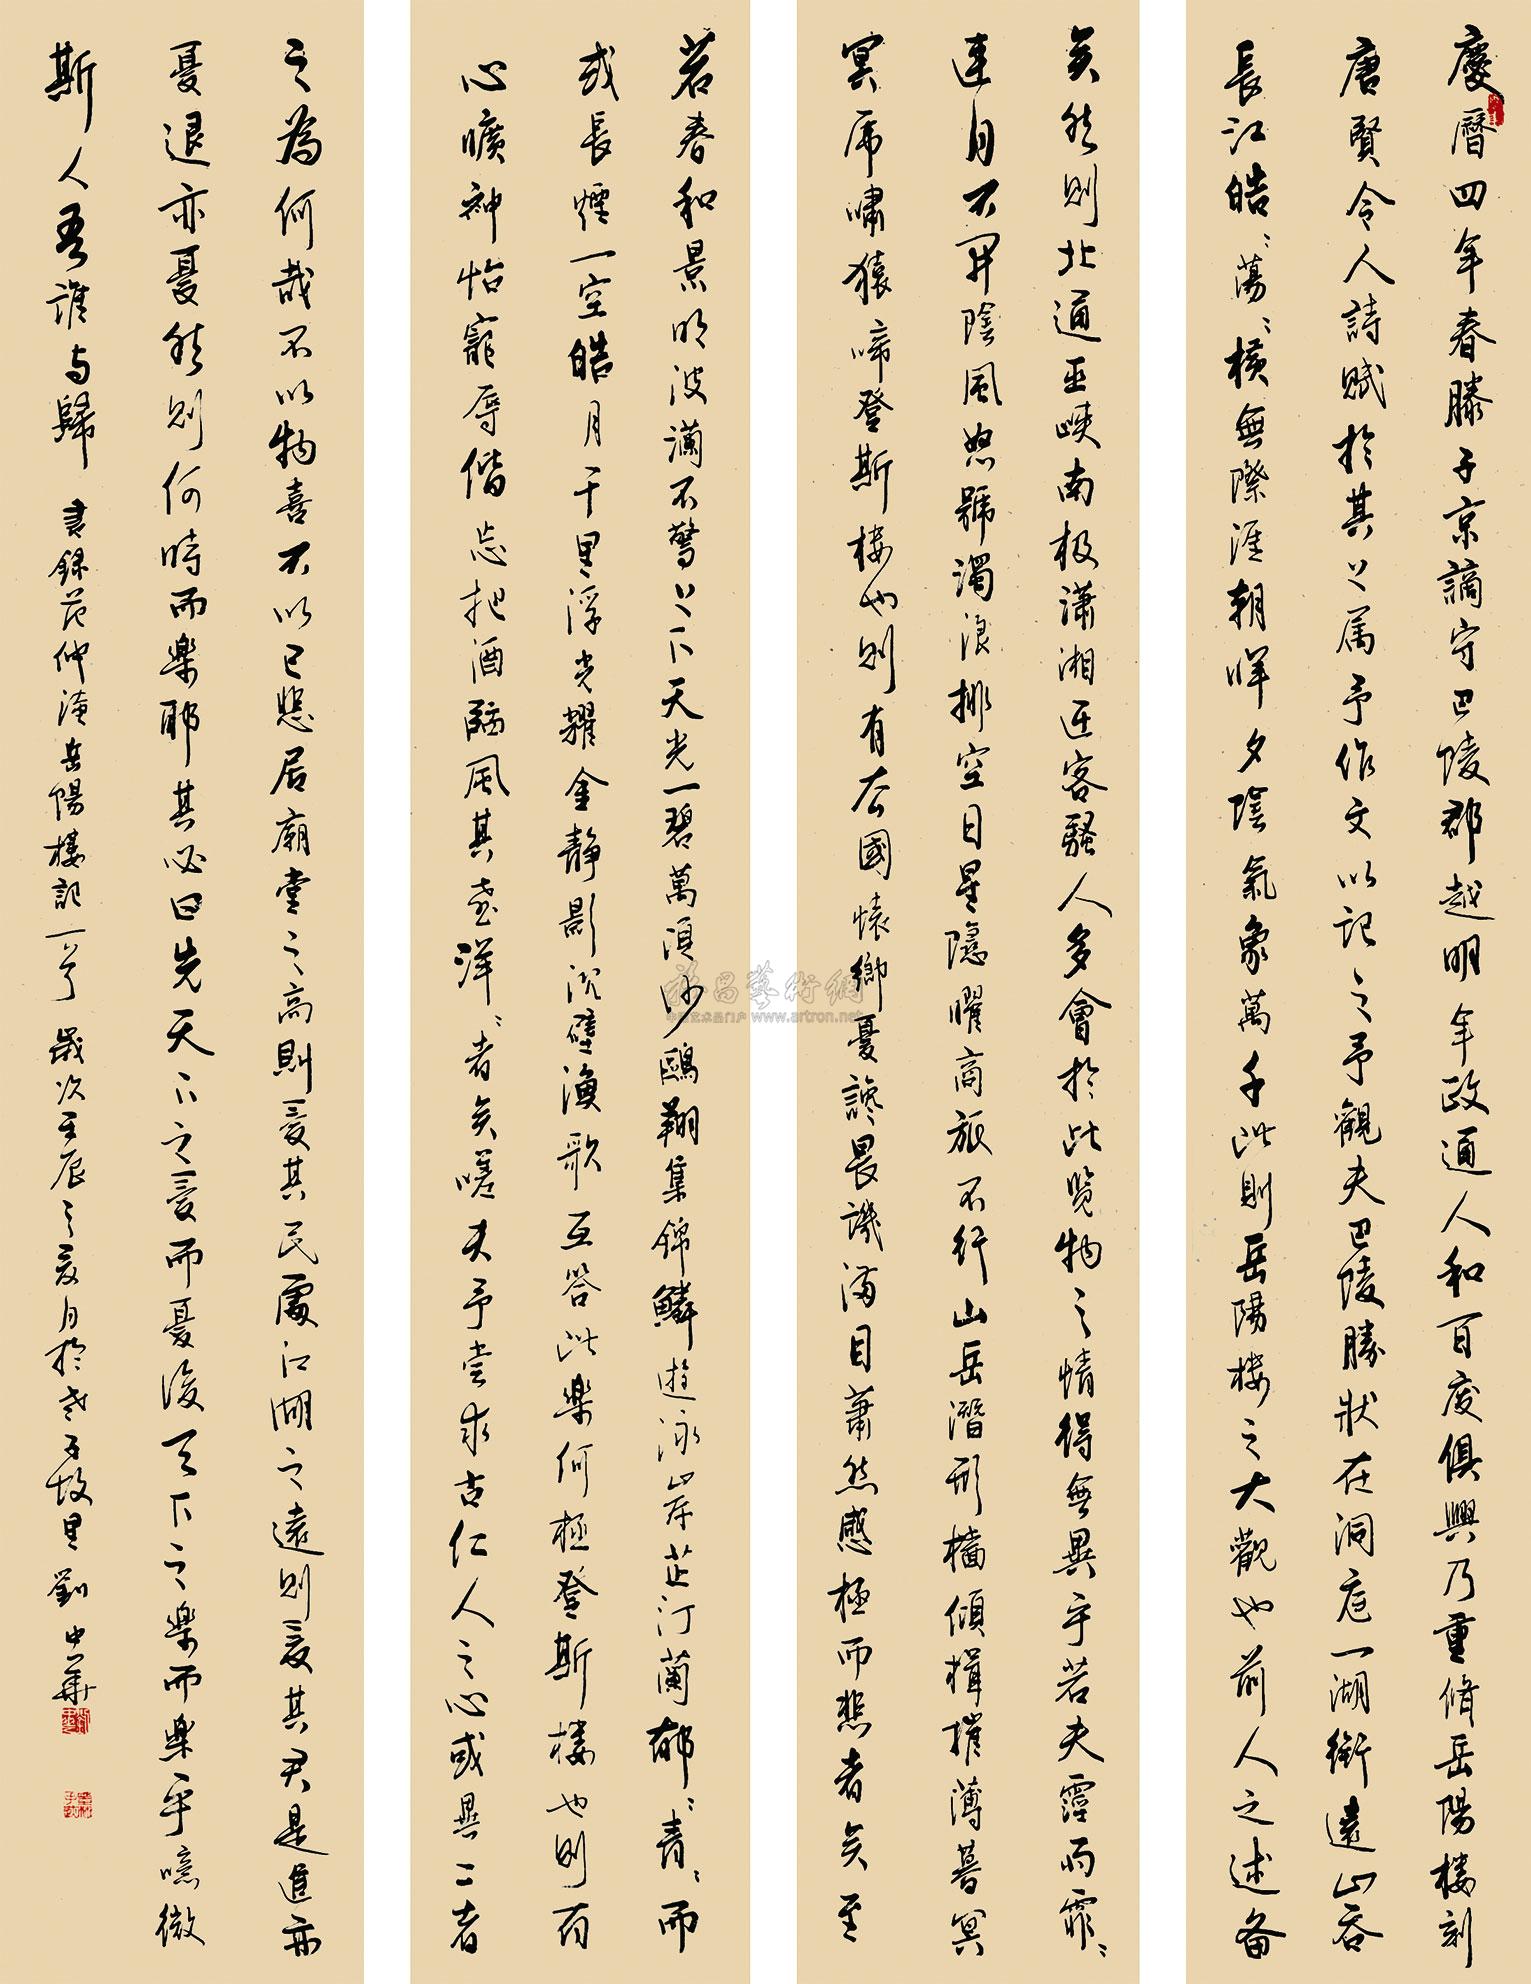 慶曆四年春滕子京謫守巴陵郡越明年政通人和百廢俱興乃重脩岳陽樓刻
唐賢令人詩賦於其上属予作文以記之予觀夫巴陵勝狀在洞庭一湖銜遠山吞
長江皓〻蕩〻横無際涯朝暉夕陰氣象萬千此則岳陽樓之大觀也前人之述备
矣然則北通巫峽南极瀟湘迁客騷人多會於此览物之情得無異乎若夫霪雨霏〻
連月不開陰風怒號濁浪排空日星隱曜商旅不行山岳潛形檣傾楫摧薄暮冥
冥虎嘯猿啼登斯楼也則有去國懷鄉憂讒畏譏滿目蕭然感極而悲者矣至
若春和景明波瀾不驚上下天光一碧萬頃沙鷗翔集錦鱗遊泳岸芷汀蘭郁〻青〻而
或長煙一空皓月千里浮光耀金静影沉璧漁歌互答此樂何極登斯楼也則有
心曠神怡寵辱偕忘把酒臨風其喜洋〻者矣嗟夫予嘗求古仁人之心或異二者
之為何哉不以物喜不以己悲居廟堂之高則憂其民處江湖之遠則憂其君是進亦
憂退亦憂然則何時而樂耶其必曰先天下之憂而憂後天下之樂而樂乎噫微
斯人吾誰与歸 書録范仲淹岳陽樓記一首 歲次壬辰之夏月於老子故里劉中華
雅昌藝術網
中国艺术品门户 www.artron.net